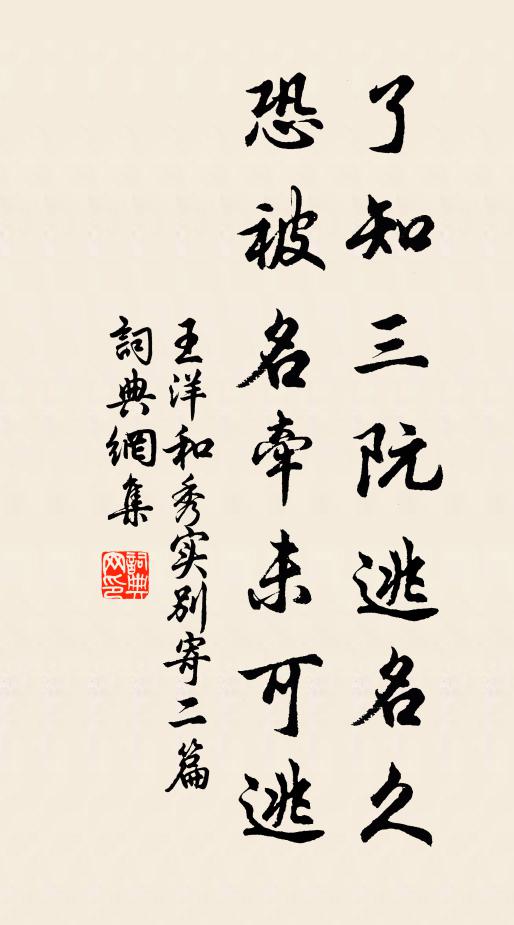 了知三阮逃名久
恐被名牽未可逃
王洋和秀实别寄二篇
詞典網集
詞典网印